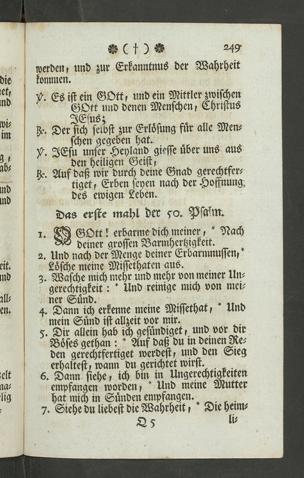 ❋ ( † ) ❋ 249
werden, und zur Erkanntnus der Wahrheit
kommen.
℣. Es ist ein GOtt, und ein Mittler zwischen
GOtt und denen Menschen, Christus
JEsus;
℟. Der sich selbst zur Erlösung für alle Men-
schen gegeben hat.
℣. JEsu unser Heyland giesse über uns aus
den heiligen Geist,
℟. Auf daß wir durch deine Gnad gerechtfer-
tiget, Erben seyen nach der Hoffnung
des ewigen Leben.
Das erste mahl der 50. Psalm.
1. O GOtt! erbarme dich meiner, * Nach
deiner grossen Barmhertzigkeit.
2. Und nach der Menge deiner Erbarmnussen, *
Lösche meine Missethaten aus.
3. Wasche mich mehr und mehr von meiner Un-
gerechtigkeit: * Und reinige mich von mei-
ner Sünd.
4. Dann ich erkenne meine Missethat, * Und
mein Sünd ist allzeit vor mir.
5. Dir allein hab ich gesündiget, und vor dir
Böses gethan: * Auf daß du in deinen Re-
den gerechtfertiget werdest, und den Sieg
erhaltest, wann du gerichtet wirst.
6. Dann siehe, ich bin in Ungerechtigkeiten
empfangen worden, * Und meine Mutter
hat mich in Sünden empfangen.
7. Siehe du liebest die Wahrheit, * Die heim-
Q 5 li-